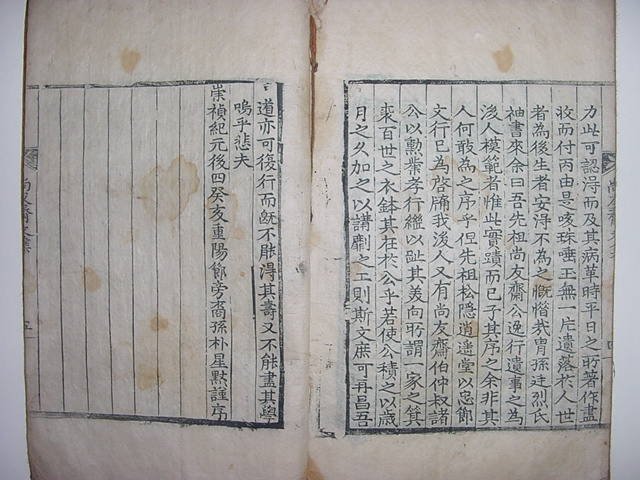 力此可認得而及其病革時平日之所著作盡
收而付丙由是咳珠唾玉無一片遺落於人世
者為後生者安得不為之慨惜哉胄孫廷烈氏
袖書來余曰吾先祖尚友齋公逸行遺事之為
後人模範者惟此實蹟而已子其序之余非其
人何敢為之序乎但先祖松隱逍遥堂以忠節
文行已為啓牖我後人又有尚友齋伯仲叔諸
公以勳業孝行繼以趾其美向所謂一家之箕
裘百世之衣鉢其在於公乎若使公積之以歲
月之久加之以講劘之工則斯文庶可再昌吾
道亦可復行而旣不能得其壽又不能盡其學
嗚乎悲夫
崇禎紀元後四癸亥重陽節旁裔孫朴星默謹序
尚友齋
五